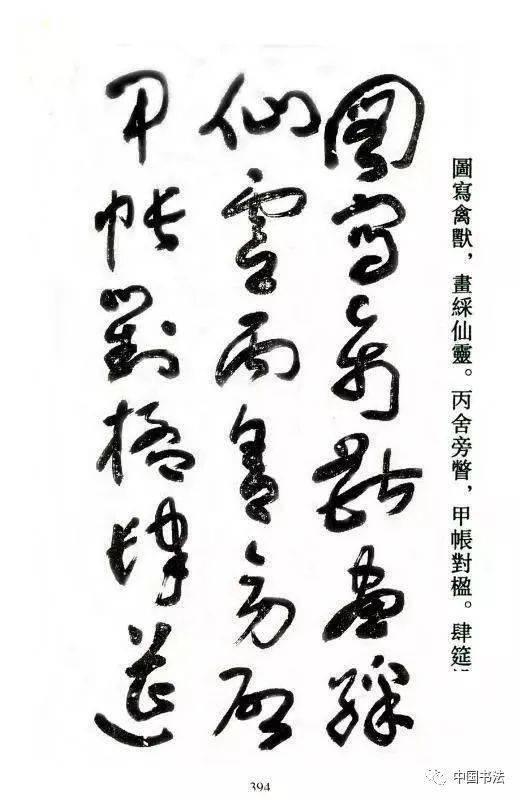 圖寫禽獸，畫綵仙靈。丙舍旁瞥，甲帳對楹。肆筵
圖寫禽獸畫綵
仙靈丙舍旁啟
甲帳對楹肆筵
394
中国书法